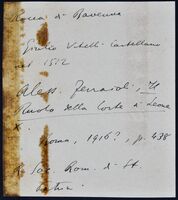 Rocca di Ravenna
Giulio Vitelli Castellano
nel 1512
Aless. Ferraioli, Il
Ruolo della Corte di Leone
X.
Roma, 1916?, p. 478
R. Soc. Rom. di St.
Patria